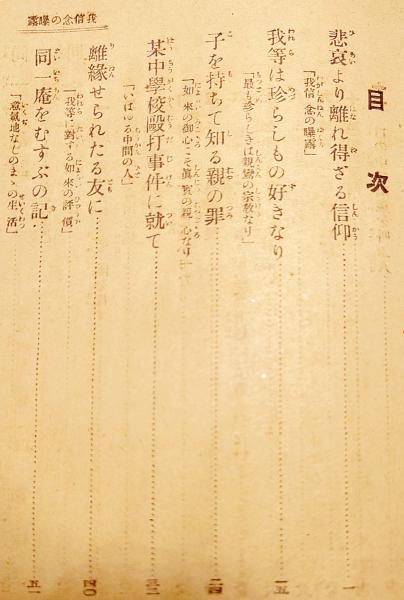 我信念の曝露
目次
悲哀より離れ得ざる信仰……一
「我信念の曝露」
我等は珍らしもの好きなり……一五
「最も珍らしきは親鸞の宗敎なり」
子を持ちて知る親の罪……二四
「如來の御心こそ眞實の親心なり」
某中學校毆打事件に就て……三二
「いはゆる中間の人」
離緣せられたる友に……四〇
「我等に對する如來の評價」
同一庵をむすぶの記……五一
「意氣地なしのまゝの生活」